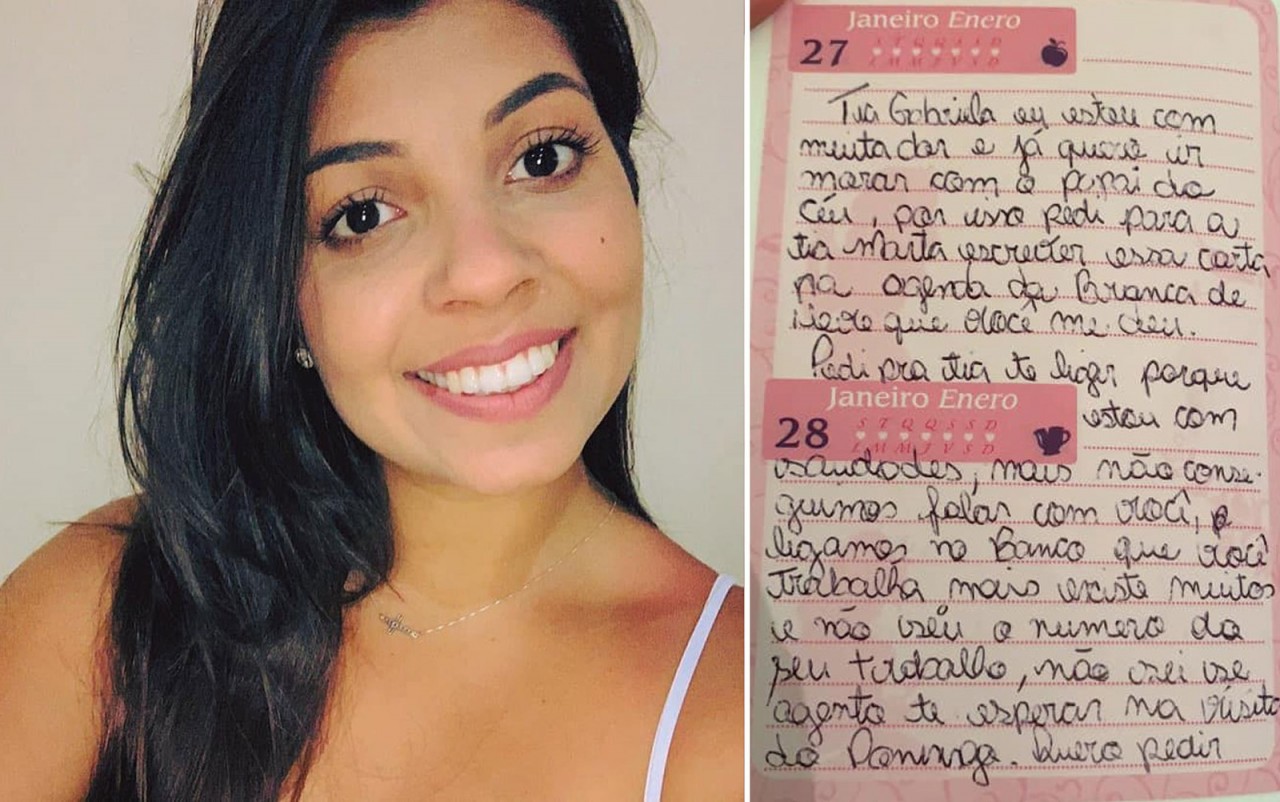 Janeiro Enero
27 S T Q Q S S D
L M M J V S D
Tia Gabriela eu estou com
muita dor e já quero ir
morar com o papai do
céu, por isso pedi para a
tia Marta escrever essa carta
na agenda da Branca de
Neve que você me deu.
Pedi pra tia te ligar porque
Janeiro Enero
28 S T Q Q S S D
L M M J V S D
estou com
saudades, mais não conse-
guimos falar com você, e
ligamos no Banco que você
trabalha mais existe muitos
e não sei o numero do
seu trabalho, não sei se
agento te esperar na visita
do Domingo. Quero pedir